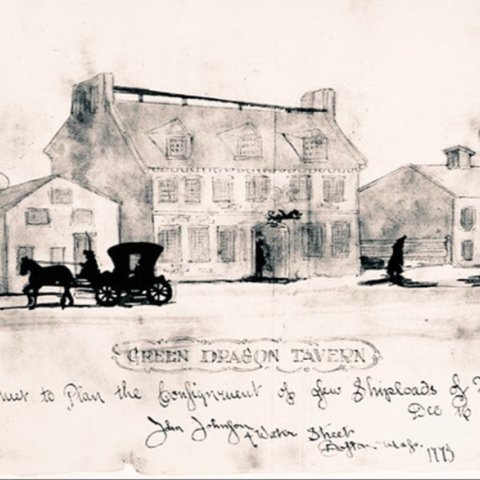 GREEN DRAGON TAVERN
met to Plan the Consignment of few Shiploads of
Dec 16
John Johnson
4 Water Street
Boston Mass. 1773